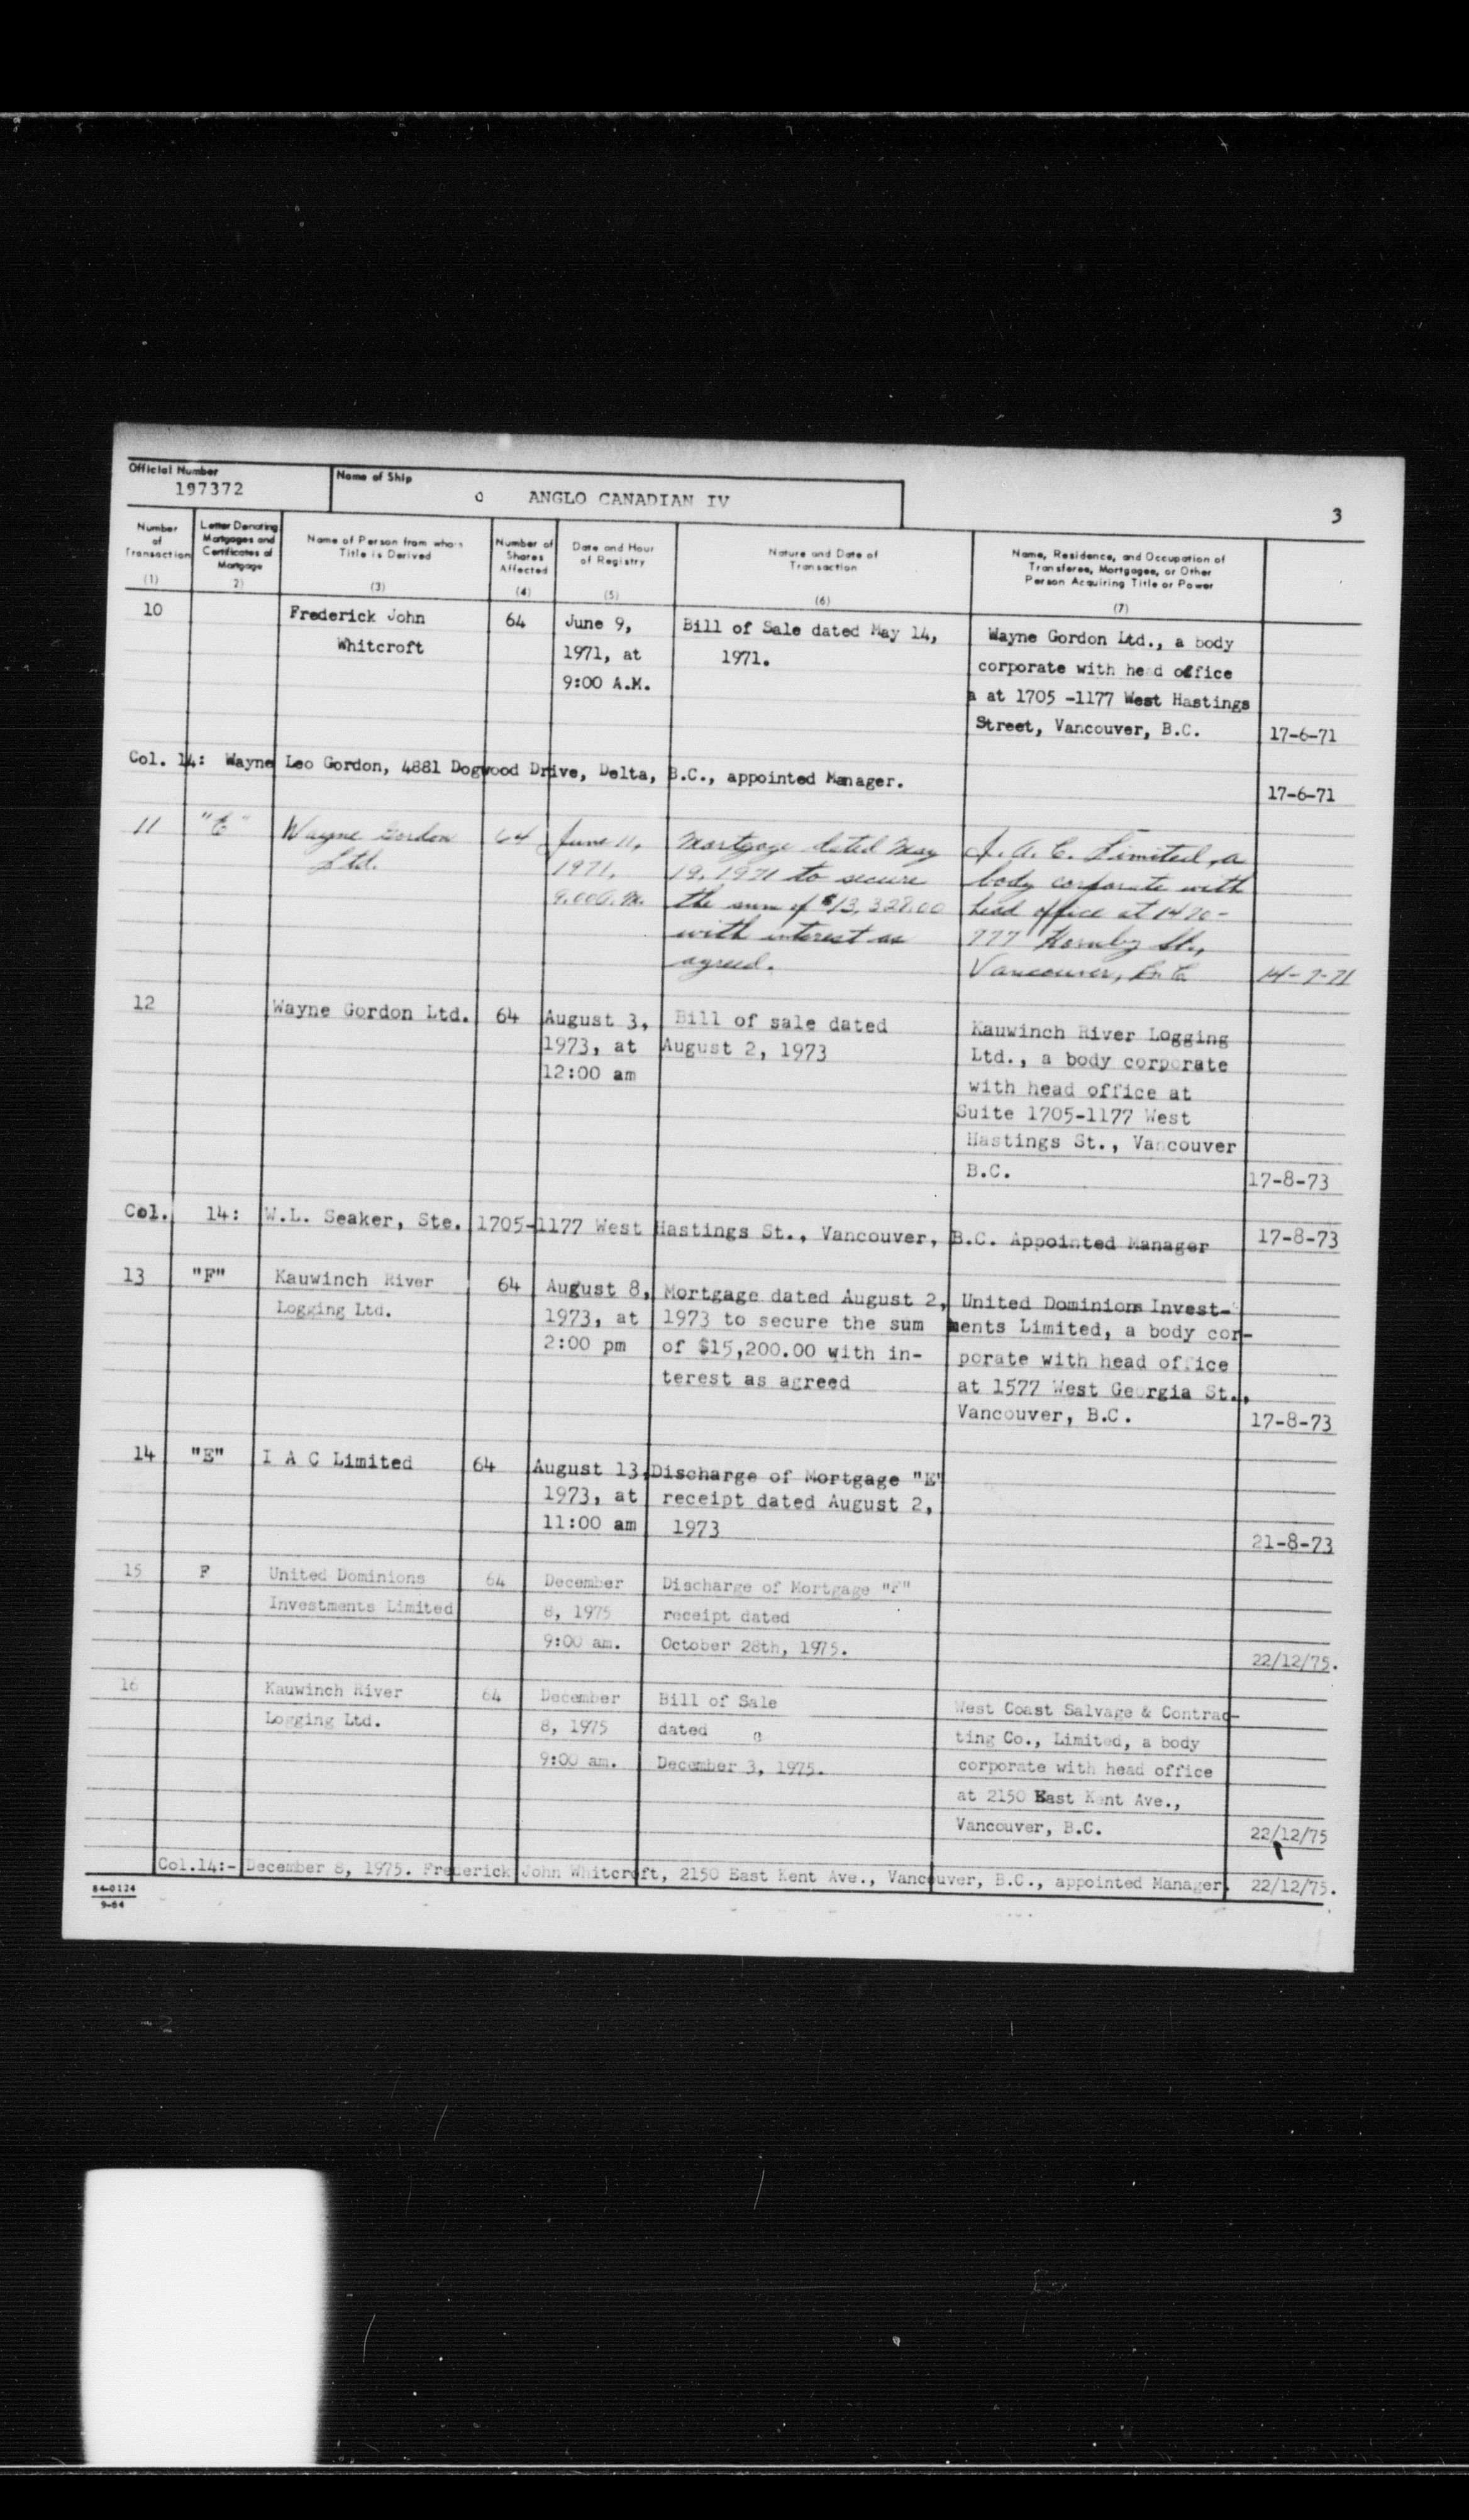 Official Number
197372
Name of Ship
ANGLO CANADIAN IV
3
Number of Transaction (1)
Letter Denoting Mortgages and Certificates of Mortgage 2)
Name of Person from whom Title is Derived (3)
Number of Shares Affected (4)
Date and Hour of Registry (5)
Nature and Date of Transaction (6)
Name, Residence, and Occupation of Transferee, Mortgagee, or Other Person Acquiring Title or Power (7)
10
Frederick John
Whitcroft
64
June 9,
1971, at
9:00 A.M.
Bill of Sale dated May 14,
1971.
Wayne Gordon Ltd., a body
corporate with head office
a at 1705 -1177 West Hastings
Street, Vancouver, B.C.
17-6-71
Col. 14: Wayne Leo Gordon, 4881 Dogwood Drive, Delta, B.C., appointed Manager.
17-6-71
11
"E"
Wayne Gordon
Ltd.
64
June 11,
1971,
9.00 A.M.
Mortgage dated May
19, 1971 to secure
the sum of $13,328.00
with interest as
agreed.
I. A. C. Limited, a
body corporate with
head office at 1420-
777 Hornby St.,
Vancouver, B.C.
14-7-71
12
Wayne Gordon Ltd.
64
August 3,
1973, at
12:00 am
Bill of sale dated
August 2, 1973
Kauwinch River Logging
Ltd., a body corporate
with head office at
Suite 1705-1177 West
Hastings St., Vancouver
B.C.
17-8-73
Col. 14: W.L. Seaker, Ste. 1705-1177 West Hastings St., Vancouver, B.C. Appointed Manager
17-8-73
13
"F"
Kauwinch River
Logging Ltd.
64
August 8,
1973, at
2:00 pm
Mortgage dated August 2,
1973 to secure the sum
of $15,200.00 with in-
terest as agreed
United Dominions Invest-
ments Limited, a body cor-
porate with head office
at 1577 West Georgia St.,
Vancouver, B.C.
17-8-73
14
"E"
I A C Limited
64
August 13,
1973, at
11:00 am
Discharge of Mortgage "E"
receipt dated August 2,
1973
21-8-73
15
F
United Dominions
Investments Limited
64
December
8, 1975
9:00 am.
Discharge of Mortgage "F"
receipt dated
October 28th, 1975.
22/12/75.
16
Kauwinch River
Logging Ltd.
64
December
8, 1975
9:00 am.
Bill of Sale
dated
December 3, 1975.
West Coast Salvage & Contrac-
ting Co., Limited, a body
corporate with head office
at 2150 East Kent Ave.,
Vancouver, B.C.
22/12/75
Col.14:- December 8, 1975. Frederick John Whitcroft, 2150 East Kent Ave., Vancouver, B.C., appointed Manager.
22/12/75.
84-0124
9-64